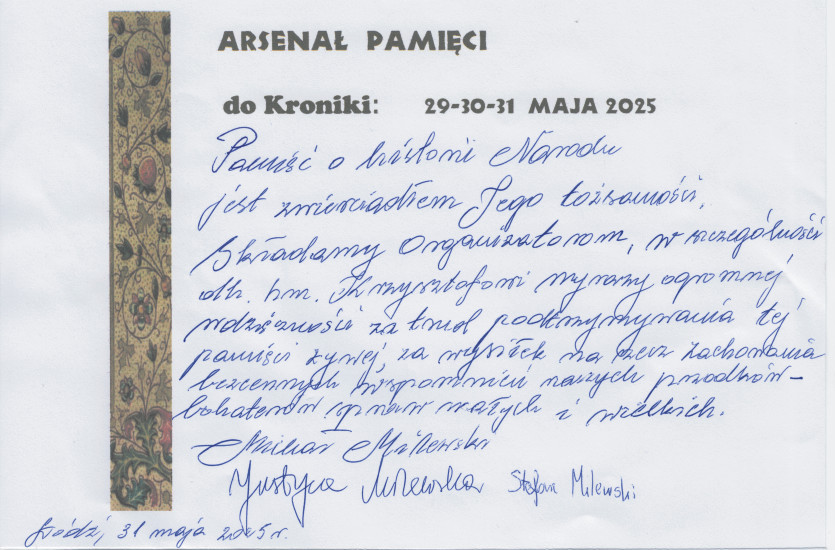 ARSENAŁ PAMIĘCI
do Kroniki: 29-30-31 MAJA 2025
Pamięć o historii Narodu
jest zwierciadłem Jego tożsamości.
Składamy Organizatorom, w szczególności
dh. hm. Krzysztofowi wyrazy ogromnej
wdzięczności za trud podtrzymywania tej
pamięci żywej za wysiłek na rzecz zachowania
bezcennych wspomnień naszych przodków–
bohaterów spraw małych i wielkich.
Milewski
Justyna Milewska Stefan Milewski
Łódź, 31 maja 2025 r.